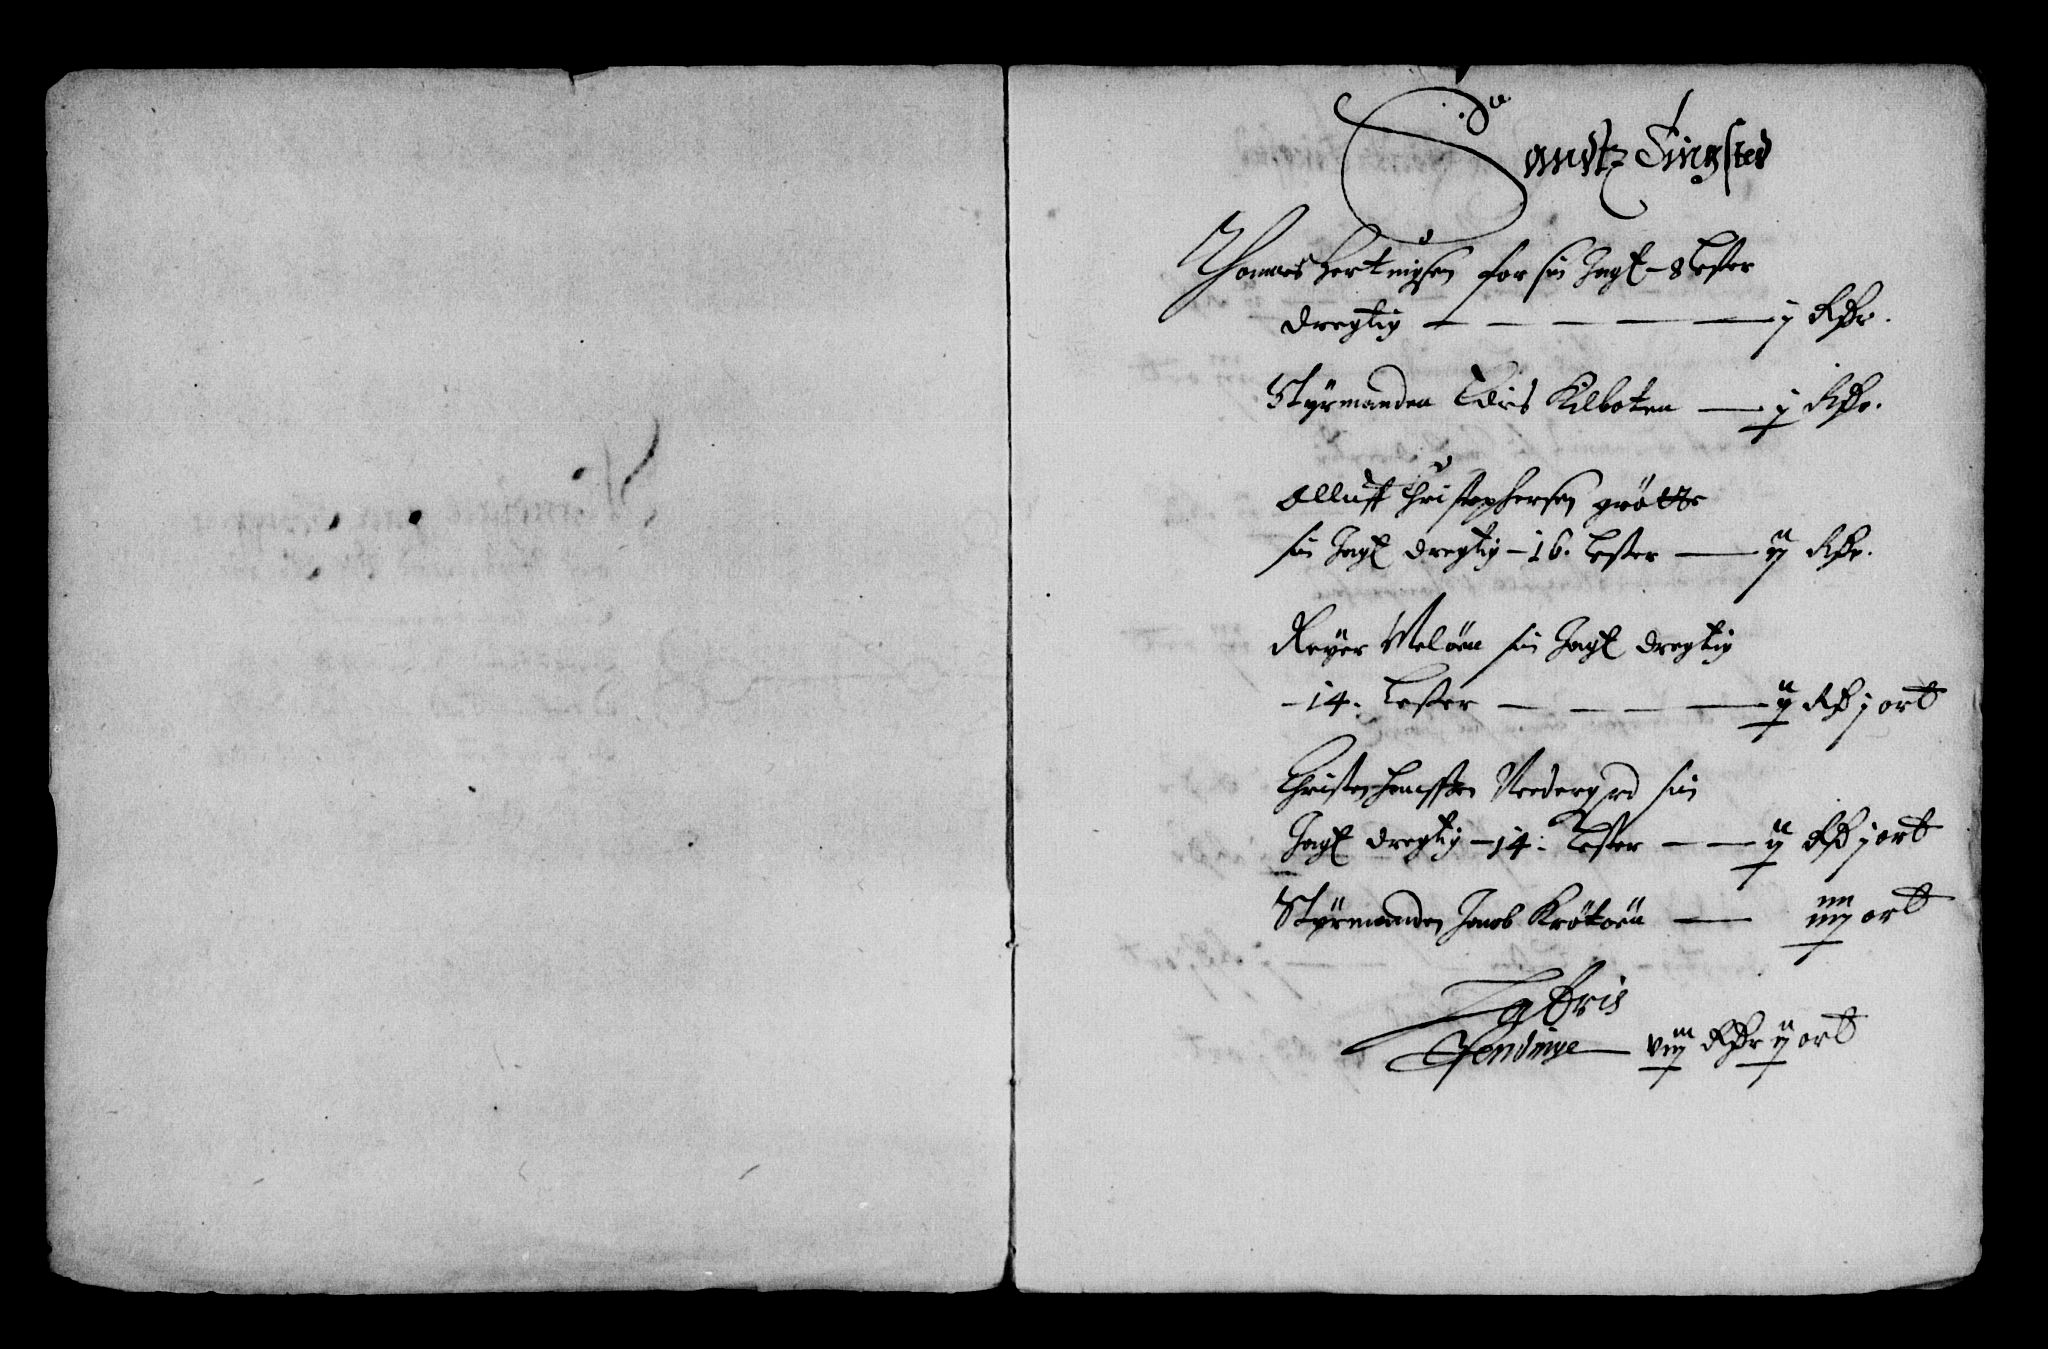 Sandtz Tingsted
Thomes Hertuigsen for sin Jagt - 8 Lester
dregtig — j Rdr.
Styrmanden Lars Kilboten — j Rdr.
Olluff Christophersen grötte
sin Jagt dregtig - 16. Lester — ij Rdr.
Reyer Meløen sin Jagt dregtig
- 14. Lester — ij Rd j ort
Christen Nedergrd sin
Jagt dregtig - 14. Lester — ij Rd j ort
Styrmanden Jacob Krøtøen — iiij ort
Lateris
Pendinge — viij Rdr ij ort